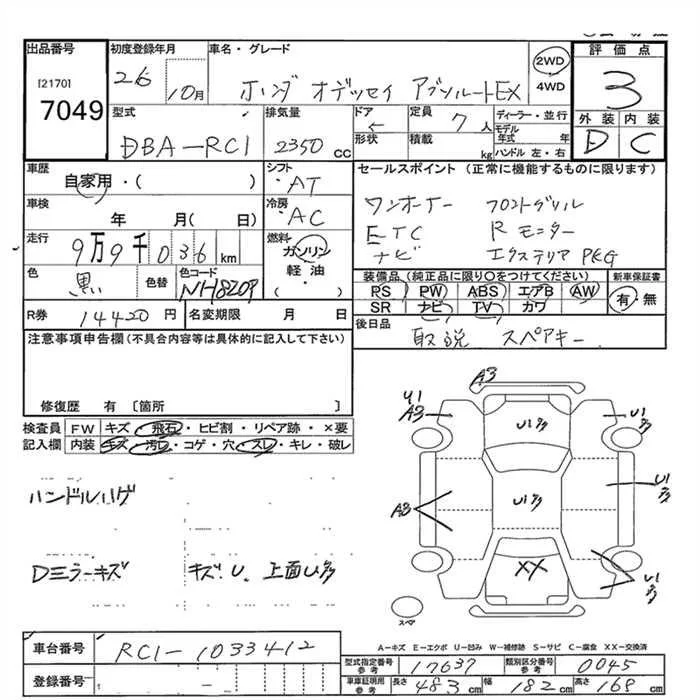 出品番号 初度登録年月 車名・グレード 評価点
[2170] 26 10月 ホンダ オデッセイ アブソルートEX 2WD 4WD 3
7049
型式 排気量 ドア 定員 ディーラー・並行 外装 内装
DBA-RC1 2350 CC 形状 積載 7人 kg モデル年式 年 ハンドル 左・右 D C
車歴 シフト セールスポイント (正常に機能するものに限ります)
自家用・( ) ・AT
車検 冷房 ワンオーナー フロントグリル
年 月( 日) ・AC ETC Rモニター
走行 燃料 ナビ エクステリア PKG
9万9千036km ガソリン
色 色替 色コード 軽油 装備品(純正品に限り○をつけてください) 新車保証書
黒 NH820P ・( ) PS PW ABS エアB AW 有・無
SR ナビ TV カワ
R券 14420円 名変期限 月 日 後日品
取説 スペアキー
注意事項申告欄(不具合内容等は具体的に記入して下さい)
修復歴 有 〔箇所 〕
検査員 FW キズ・飛石・ヒビ割・リペア跡・×要
記入欄 内装 キズ・汚レ・コゲ・穴・スレ・キレ・破レ
ハンドルハゲ
Dミラーキズ キズ、U、上面Uタタ
A3
U1
A3
U1
U1タタ
U1タタ
U1タタ
A3
XX
U1タタ
スペア
A-キズ E-エクボ U-凹み W-補修跡 S-サビ C-腐食 XX-交換済
車台番号 RC1-1033412
登録番号
型式指定番号 参考 17637 類別区分番号 参考 0045
車庫証明用 参考 長さ 483cm 幅 182cm 高さ 168cm